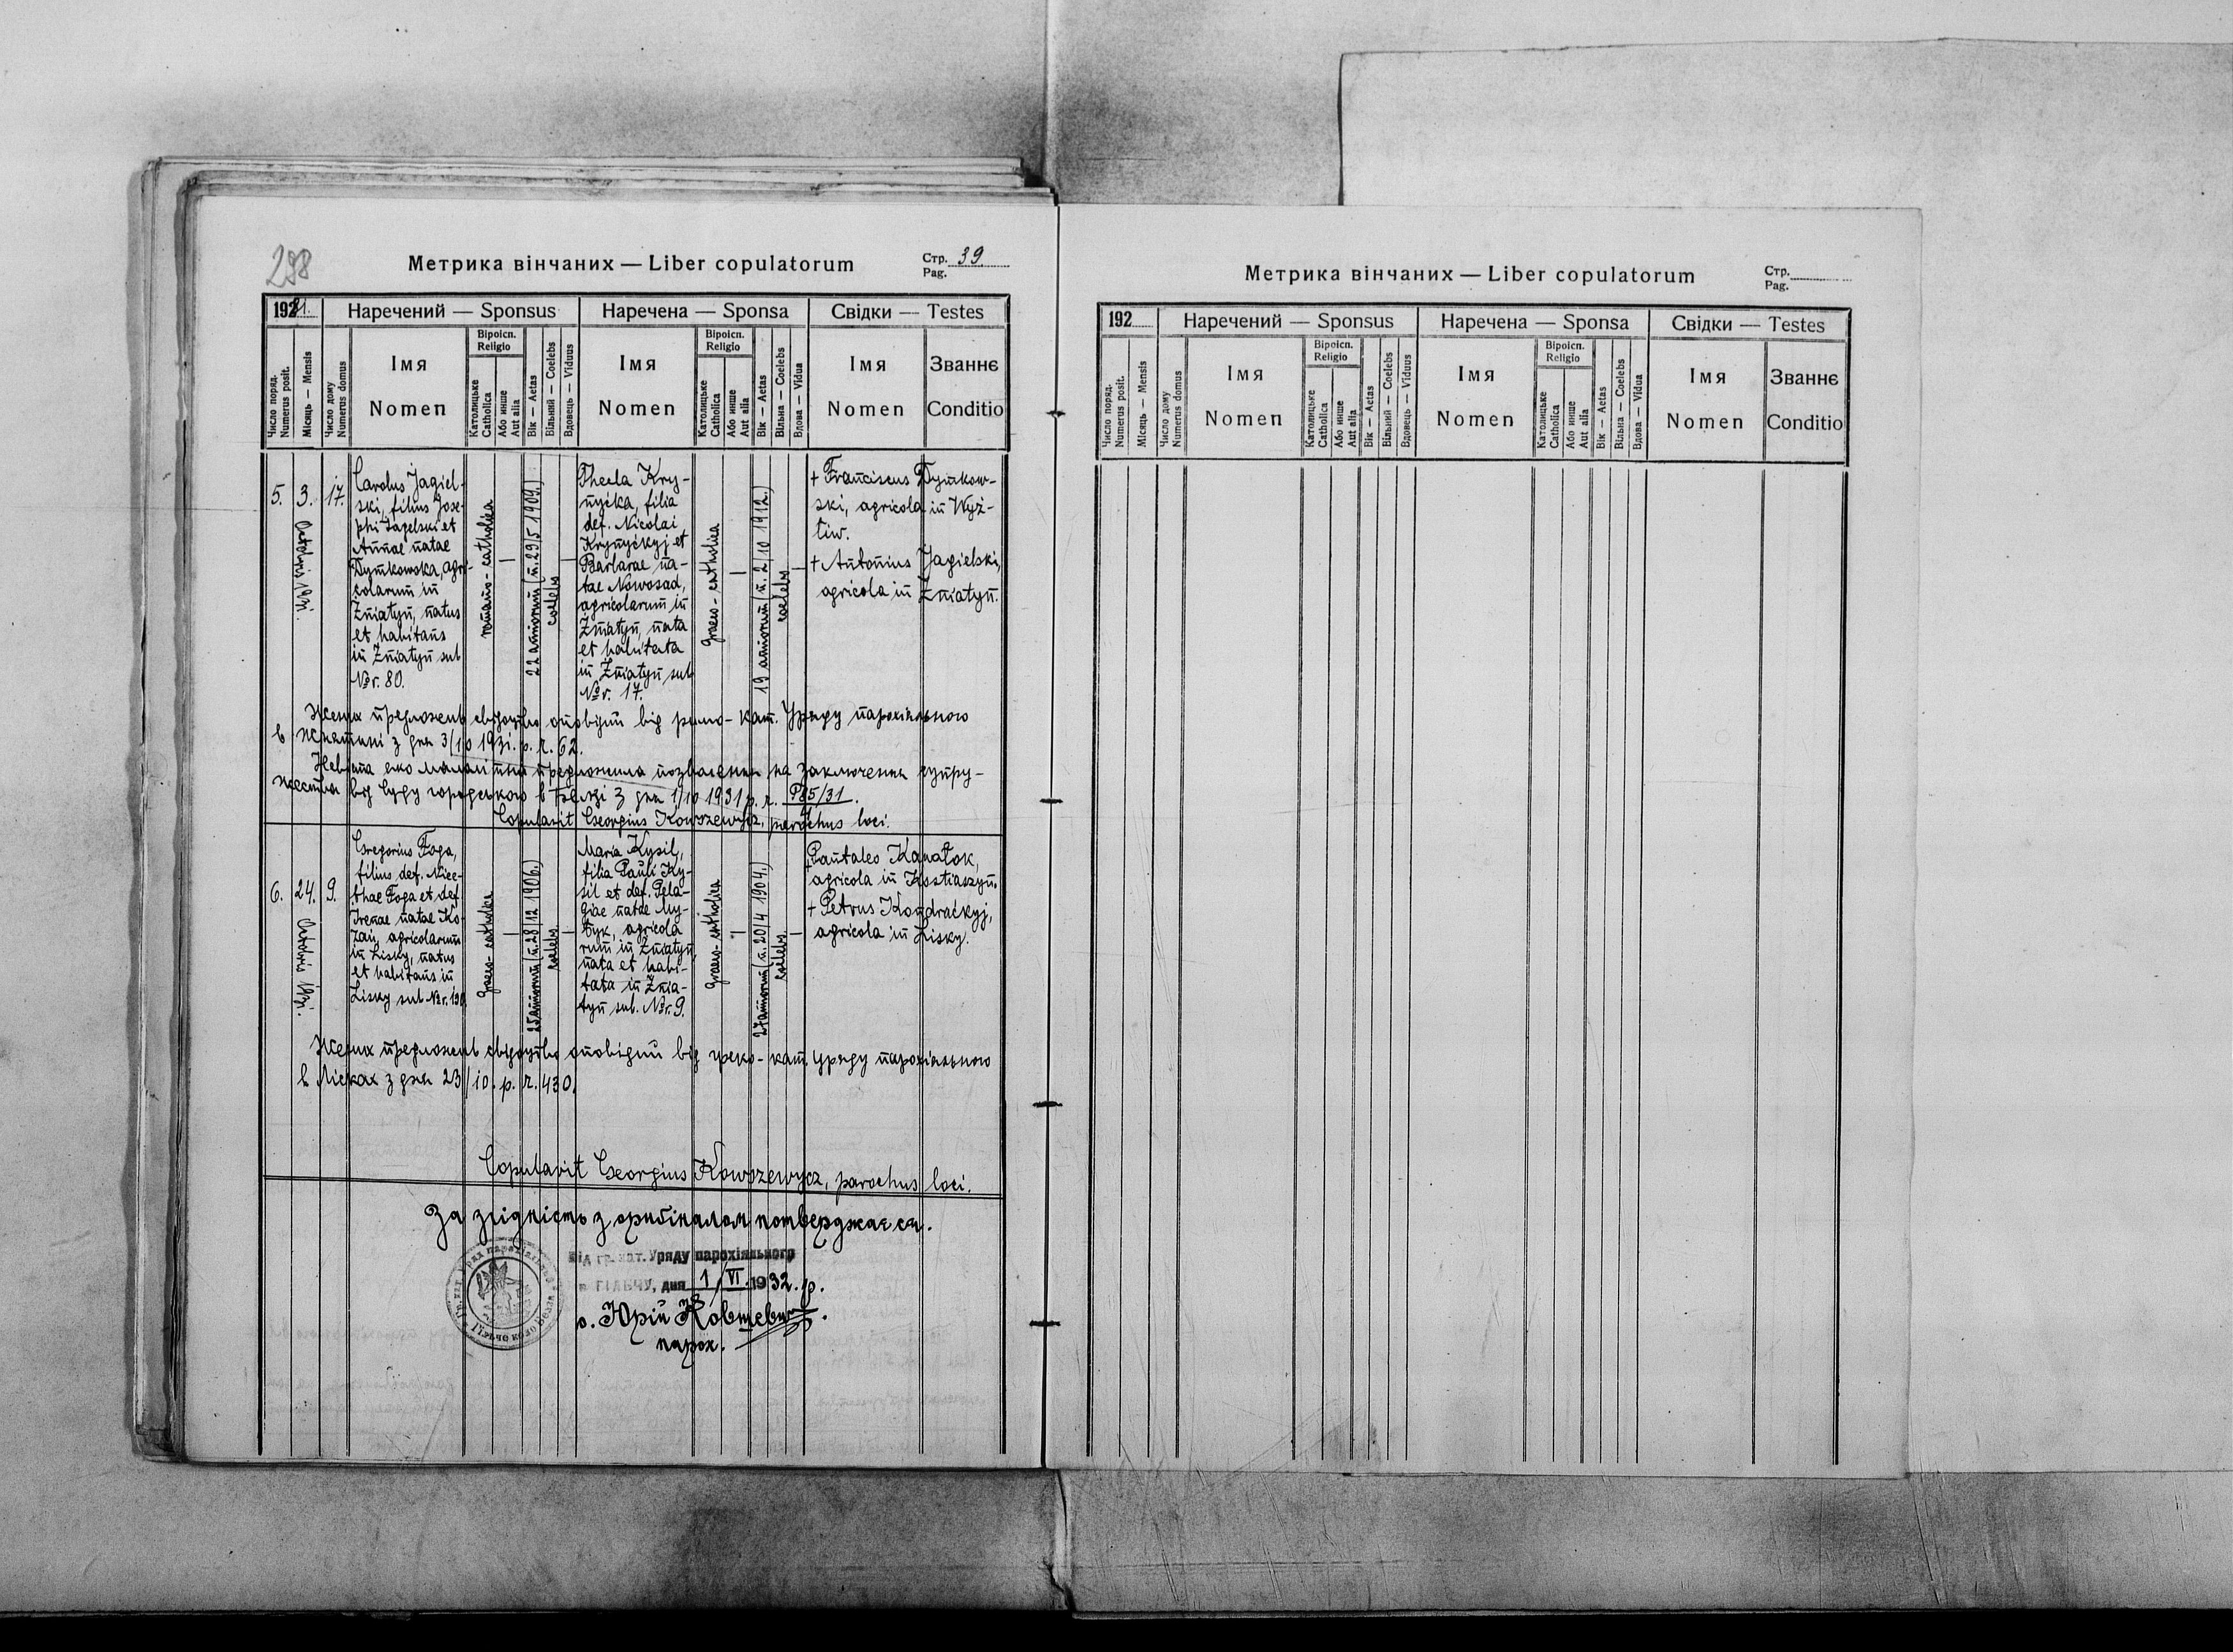 298
Метрика вінчаних — Liber copulatorum
Стр. 39
Pag.
1931.
Наречений — Sponsus
Наречена — Sponsa
Свідки — Testes
Число поряд.
Numerus posit.
Місяць — Mensis
Число дому
Numerus domus
Імя
Nomen
Віроісп.
Religio
Католицьке
Catholica
Або инше
Aut alia
Вік — Aetas
Вільний — Coelebs
Вдовець — Viduus
Імя
Nomen
Віроісп.
Religio
Католицьке
Catholica
Або инше
Aut alia
Вік — Aetas
Вільна — Coelebs
Вдова — Vidua
Імя
Nomen
Званнє
Conditio
5.
3.
Octobris 1931.
17.
Carolus Jagiel-
ski, filius Jose-
phi Jagelski et
Annae natae
Dymkowska, agri-
colarum in
Żniatyn, natus
et habitans
in Żniatyn sub
Nr. 80.
romano-catholica
—
22 annorum (n. 29/5 1909.)
coelebs
—
Thecla Kry-
nyćka, filia
def. Nicolai
Krynyćkyj et
Barbarae na-
tae Nowosad,
agricolarum in
Żniatyn, nata
et habitata
in Żniatyn sub
Nr. 17.
graeco-catholica
—
19 annorum (n. 2/10 1912.)
coelebs
—
+ Franciscus Dymkow-
ski, agricola in Wyż-
tiw.
+ Antonius Jagielski,
agricola in Żniatyn.
Жених предложив свідоцтво оповідий від римо-кат. Уряду парохіяльного
в Жнятині з дня 3/10 1931. р. ч. 62.
Невіста яко малолітна предложила позволення на заключення супру-
жества від Суду городського в Белзі з дня 1/10 1931 р. ч. P85/31.
Copulavit Georgius Kowszewycz, parochus loci.
6.
24.
Octobris 1931.
9.
Gregorius Foga,
filius def. Nice-
thae Foga et def.
Irenae natae Ko-
zan, agricolarum
in Lisky, natus
et habitans in
Lisky sub Nr. 190
graeco-catholica
—
25 annorum (n. 28/12 1906.)
coelebs
—
Maria Kysil,
filia Pauli Ky-
sil et def. Pela-
giae natae My-
tyk, agricola
rum in Żniatyn,
nata et habi-
tata in Żnia-
tyn sub. Nr. 9.
graeco-catholica
—
27 annorum (n. 20/4 1904.)
coelebs.
—
+ Pantaleo Kanatok,
agricola in Kostiaszyn.
+ Petrus Kondraćkyj,
agricola in Lisky.
Жених предложив свідоцтво оповідий від греко-кат. уряду парохіяльного
в Лісках з дня 23/10. р. ч. 430.
Copulavit Georgius Kowszewycz, parochus loci.
За згідність з оригіналом потверджаєся.
Від гр. кат. Уряду парохіяльного
в ГІЛЬЧУ, дня 1/VI 1932. р.
о. Юрій Ковшевич.
парох.
Метрика вінчаних — Liber copulatorum
Стр.
Pag.
192
Наречений — Sponsus
Наречена — Sponsa
Свідки — Testes
Число поряд.
Numerus posit.
Місяць — Mensis
Число дому
Numerus domus
Імя
Nomen
Віроісп.
Religio
Католицьке
Catholica
Або инше
Aut alia
Вік — Aetas
Вільний — Coelebs
Вдовець — Viduus
Імя
Nomen
Віроісп.
Religio
Католицьке
Catholica
Або инше
Aut alia
Вік — Aetas
Вільна — Coelebs
Вдова — Vidua
Імя
Nomen
Званнє
Conditio